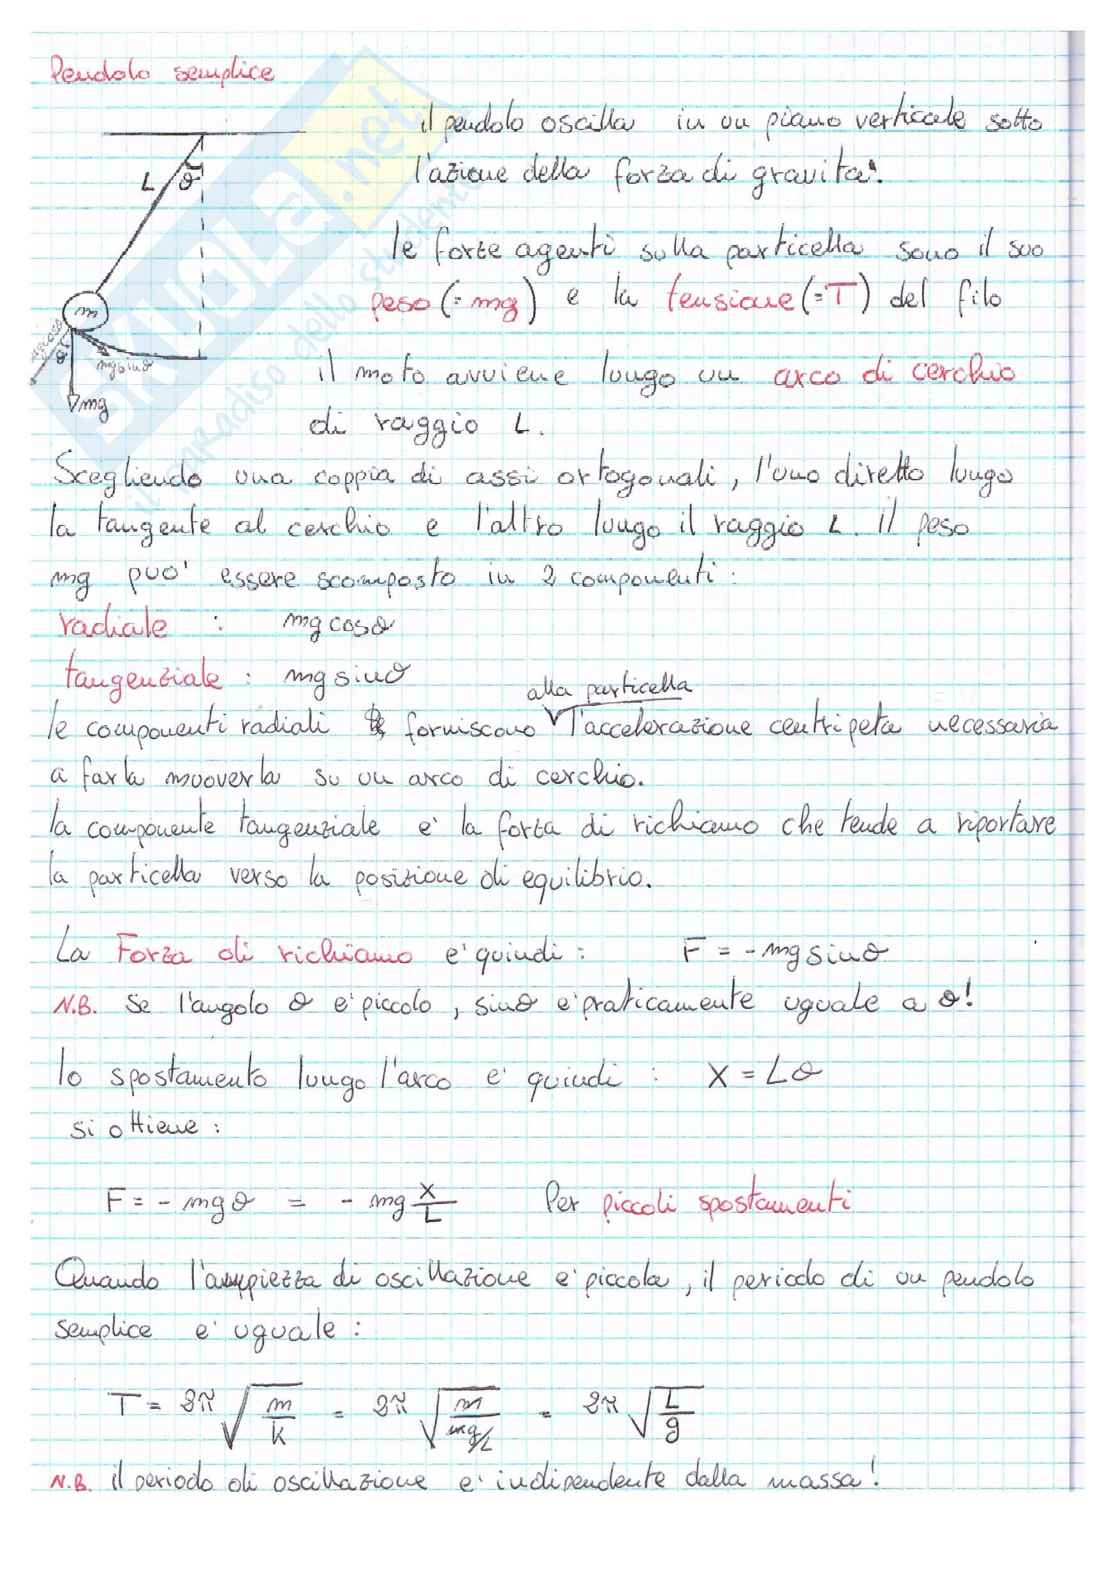 Pendolo semplice
il pendolo oscilla in un piano verticale sotto
l'azione della forza di gravita'.
L θ
le forze agenti sulla particella sono il suo
peso (= mg) e la tensione (= T) del filo
m
mgcosθ
θ
mgsinθ
mg
il moto avviene lungo un arco di cerchio
di raggio L.
Scegliendo una coppia di assi ortogonali, l'uno diretto lungo
la tangente al cerchio e l'altro lungo il raggio L. il peso
mg puo' essere scomposto in 2 componenti:
radiale : mgcosθ
tangenziale : mgsinθ
alla particella
le componenti radiali forniscono l'accelerazione centripeta necessaria
a farla muoverla su un arco di cerchio.
la componente tangenziale e' la forza di richiamo che tende a riportare
la particella verso la posizione di equilibrio.
La Forza di richiamo e' quindi: F = -mgsinθ
N.B. Se l'angolo θ e' piccolo, sinθ e' praticamente uguale a θ!
lo spostamento lungo l'arco e' quindi: X = Lθ
si ottiene:
F = - mgθ = - mg X/L Per piccoli spostamenti
Quando l'ampiezza di oscillazione e' piccola, il periodo di un pendolo
semplice e' uguale:
T = 2π √(m/k) = 2π √(m/(mg/L)) = 2π √(L/g)
N.B. il periodo di oscillazione e' indipendente dalla massa!
SKUOLA.net
il paradiso dello studente